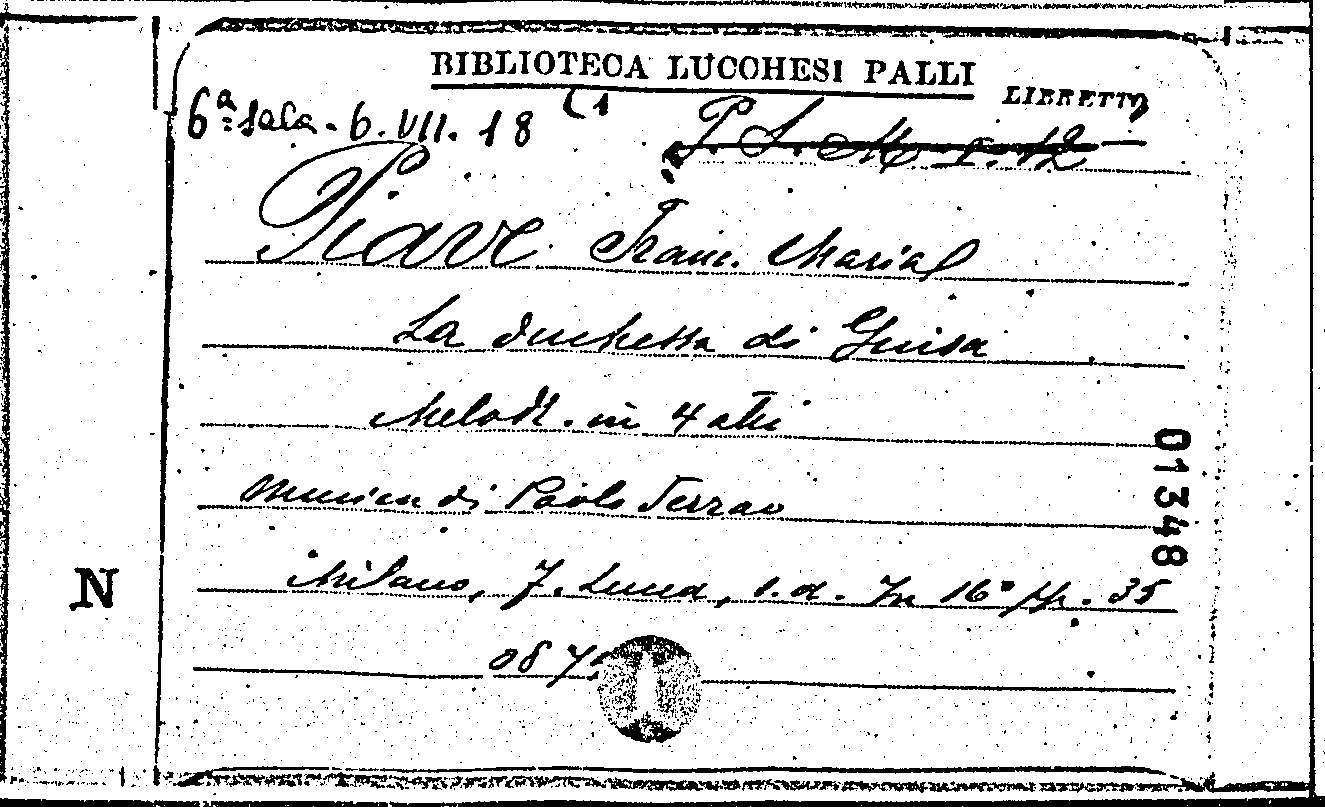 BIBLIOTECA LUCCHESI PALLI
LIBRETTO
6ª sala. 6. VII. 18 (1
P. S. M. I. 12
Piave Franc. Maria
La duchessa di Guisa
Melodr. in 4 atti
musica di Paolo Serrao
Milano, F. Lucca, s. d. In 16° pp. 35
087
01348
N